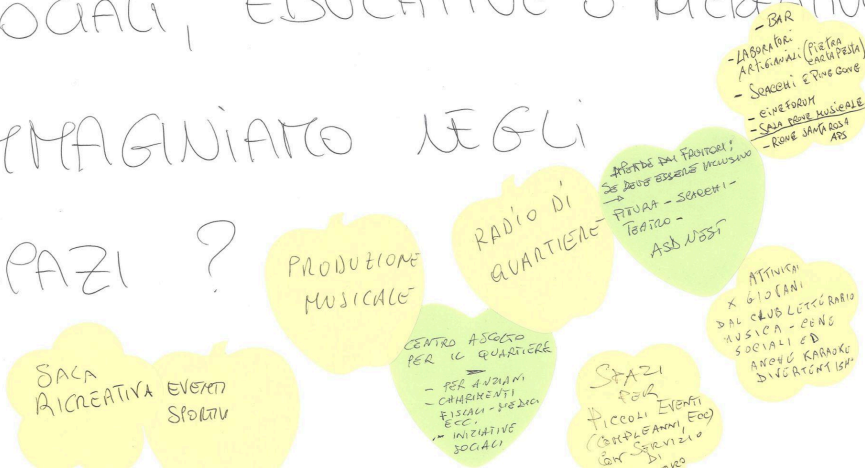 SOCIALI, EDUCATIVE O RICREATIVE
IMMAGINIAMO NEGLI
SPAZI ?
- BAR
- LABORATORI
ARTIGIANALI (PIETRA
CARTAPESTA)
- SCACCHI E PING PONG
- CINEFORUM
- SALA PROVE MUSICALE
- RIONE SANTA ROSA
APS
DIPENDE DAI FRUITORI;
SE DEVE ESSERE INCLUSIVO
→
PITTURA - SCACCHI -
TEATRO -
ASD NEST
RADIO DI
QUARTIERE
PRODUZIONE
MUSICALE
ATTIVITA'
X GIOVANI
DAL CLUB LETTERARIO
MUSICA - CENE
SOCIALI ED
ANCHE KARAOKE
CENTRO ASCOLTO
PER IL QUARTIERE
- PER ANZIANI
- CHIARIMENTI
FISCALI - MEDICI
ECC.
- INIZIATIVE
SOCIALI
SALA
RICREATIVA
EVENTI
SPORTIVI
SPAZI
PER
PICCOLI EVENTI
(COMPLEANNI, ECC)
CON SERVIZIO
DI